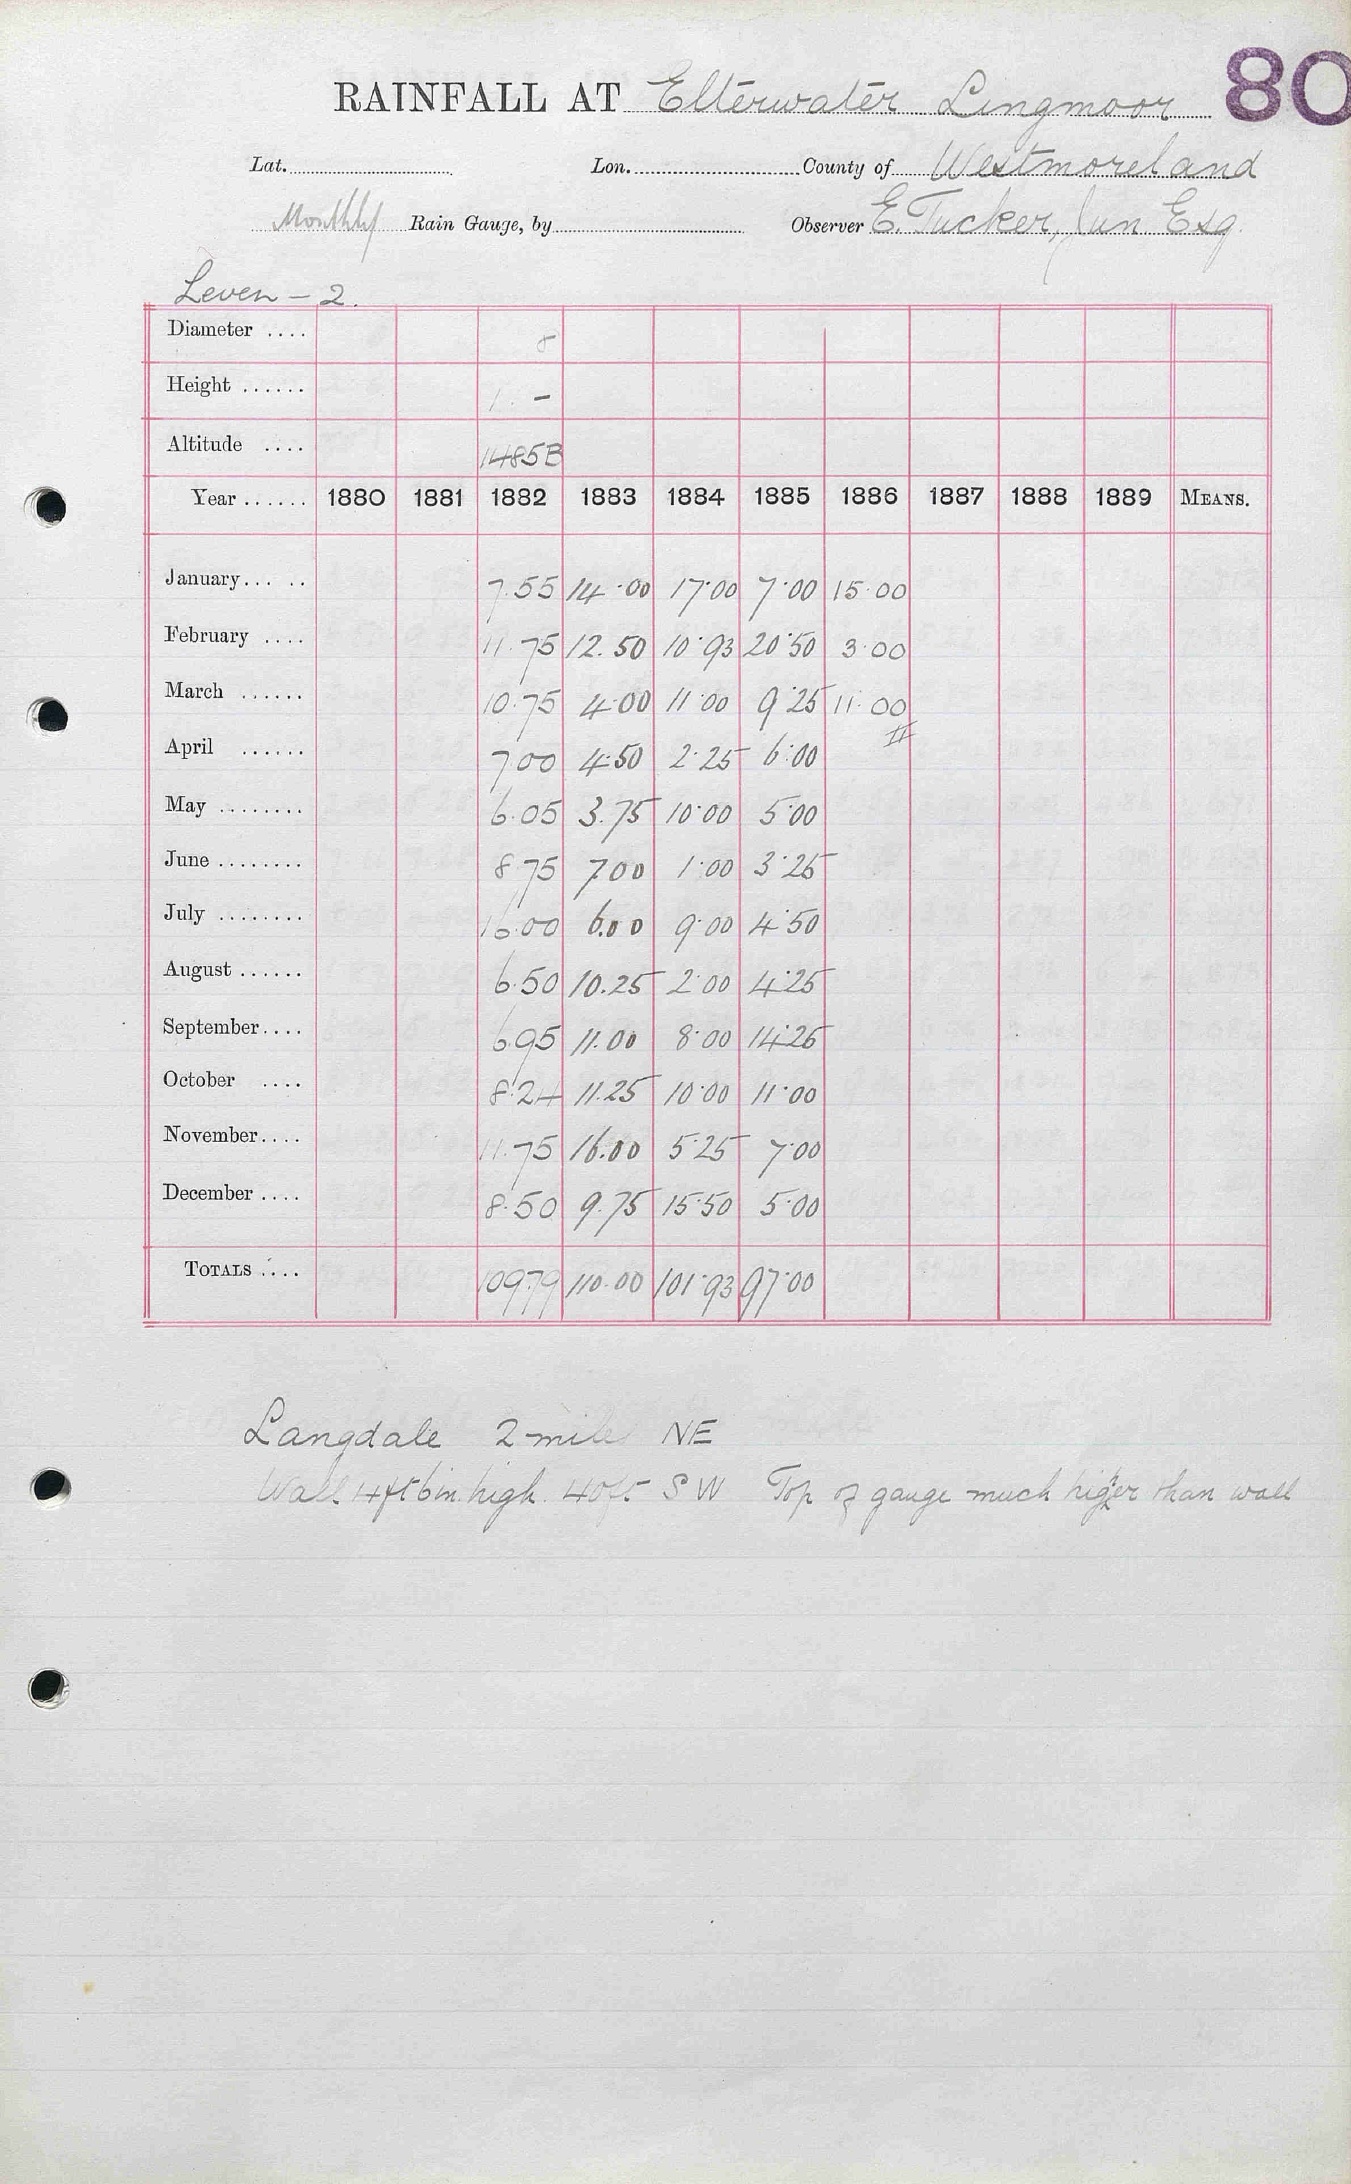 80
RAINFALL AT Elterwater Lingmoor
Lat. Lon. County of Westmoreland
Monthly Rain Gauge, by Observer E. Tucker, Jun Esq.
Leven - 2.
Diameter .... 8
Height ...... 1 . -
Altitude .... 1485B
Year ...... 1880 1881 1882 1883 1884 1885 1886 1887 1888 1889 MEANS.
January... .. 7.55 14.00 17.00 7.00 15.00
February .... 11.75 12.50 10.93 20.50 3.00
March ...... 10.75 4.00 11.00 9.25 11.00
April ...... 7.00 4.50 2.25 6.00 II
May ........ 6.05 3.75 10.00 5.00
June ........ 8.75 7.00 1.00 3.25
July ........ 16.00 6.00 9.00 4.50
August ...... 6.50 10.25 2.00 4.25
September.... 6.95 11.00 8.00 14.25
October .... 8.24 11.25 10.00 11.00
November.... 11.75 16.00 5.25 7.00
December .... 8.50 9.75 15.50 5.00
TOTALS .... 109.79 110.00 101.93 97.00
Langdale 2 mile NE
Wall 4ft 6in. high. 40ft SW Top of gauge much higher than wall